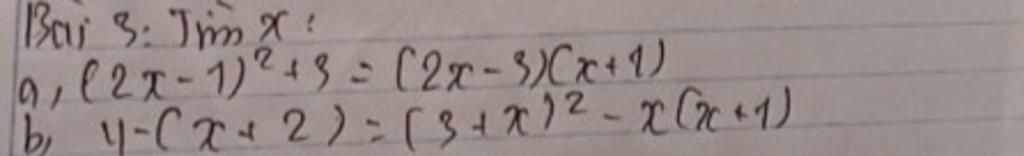 Bài 3: Tìm x:
a, (2x-1)²+3 = (2x-3)(x+1)
b, 4-(x+2)=(3+x)²-x(x+1)